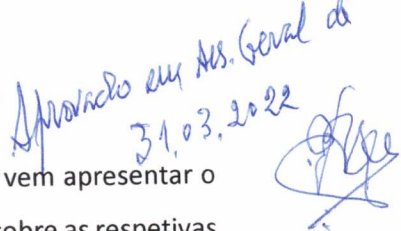 Aprovado em Ass. Geral de
31.03.2022
vem apresentar o
sobre as respetivas